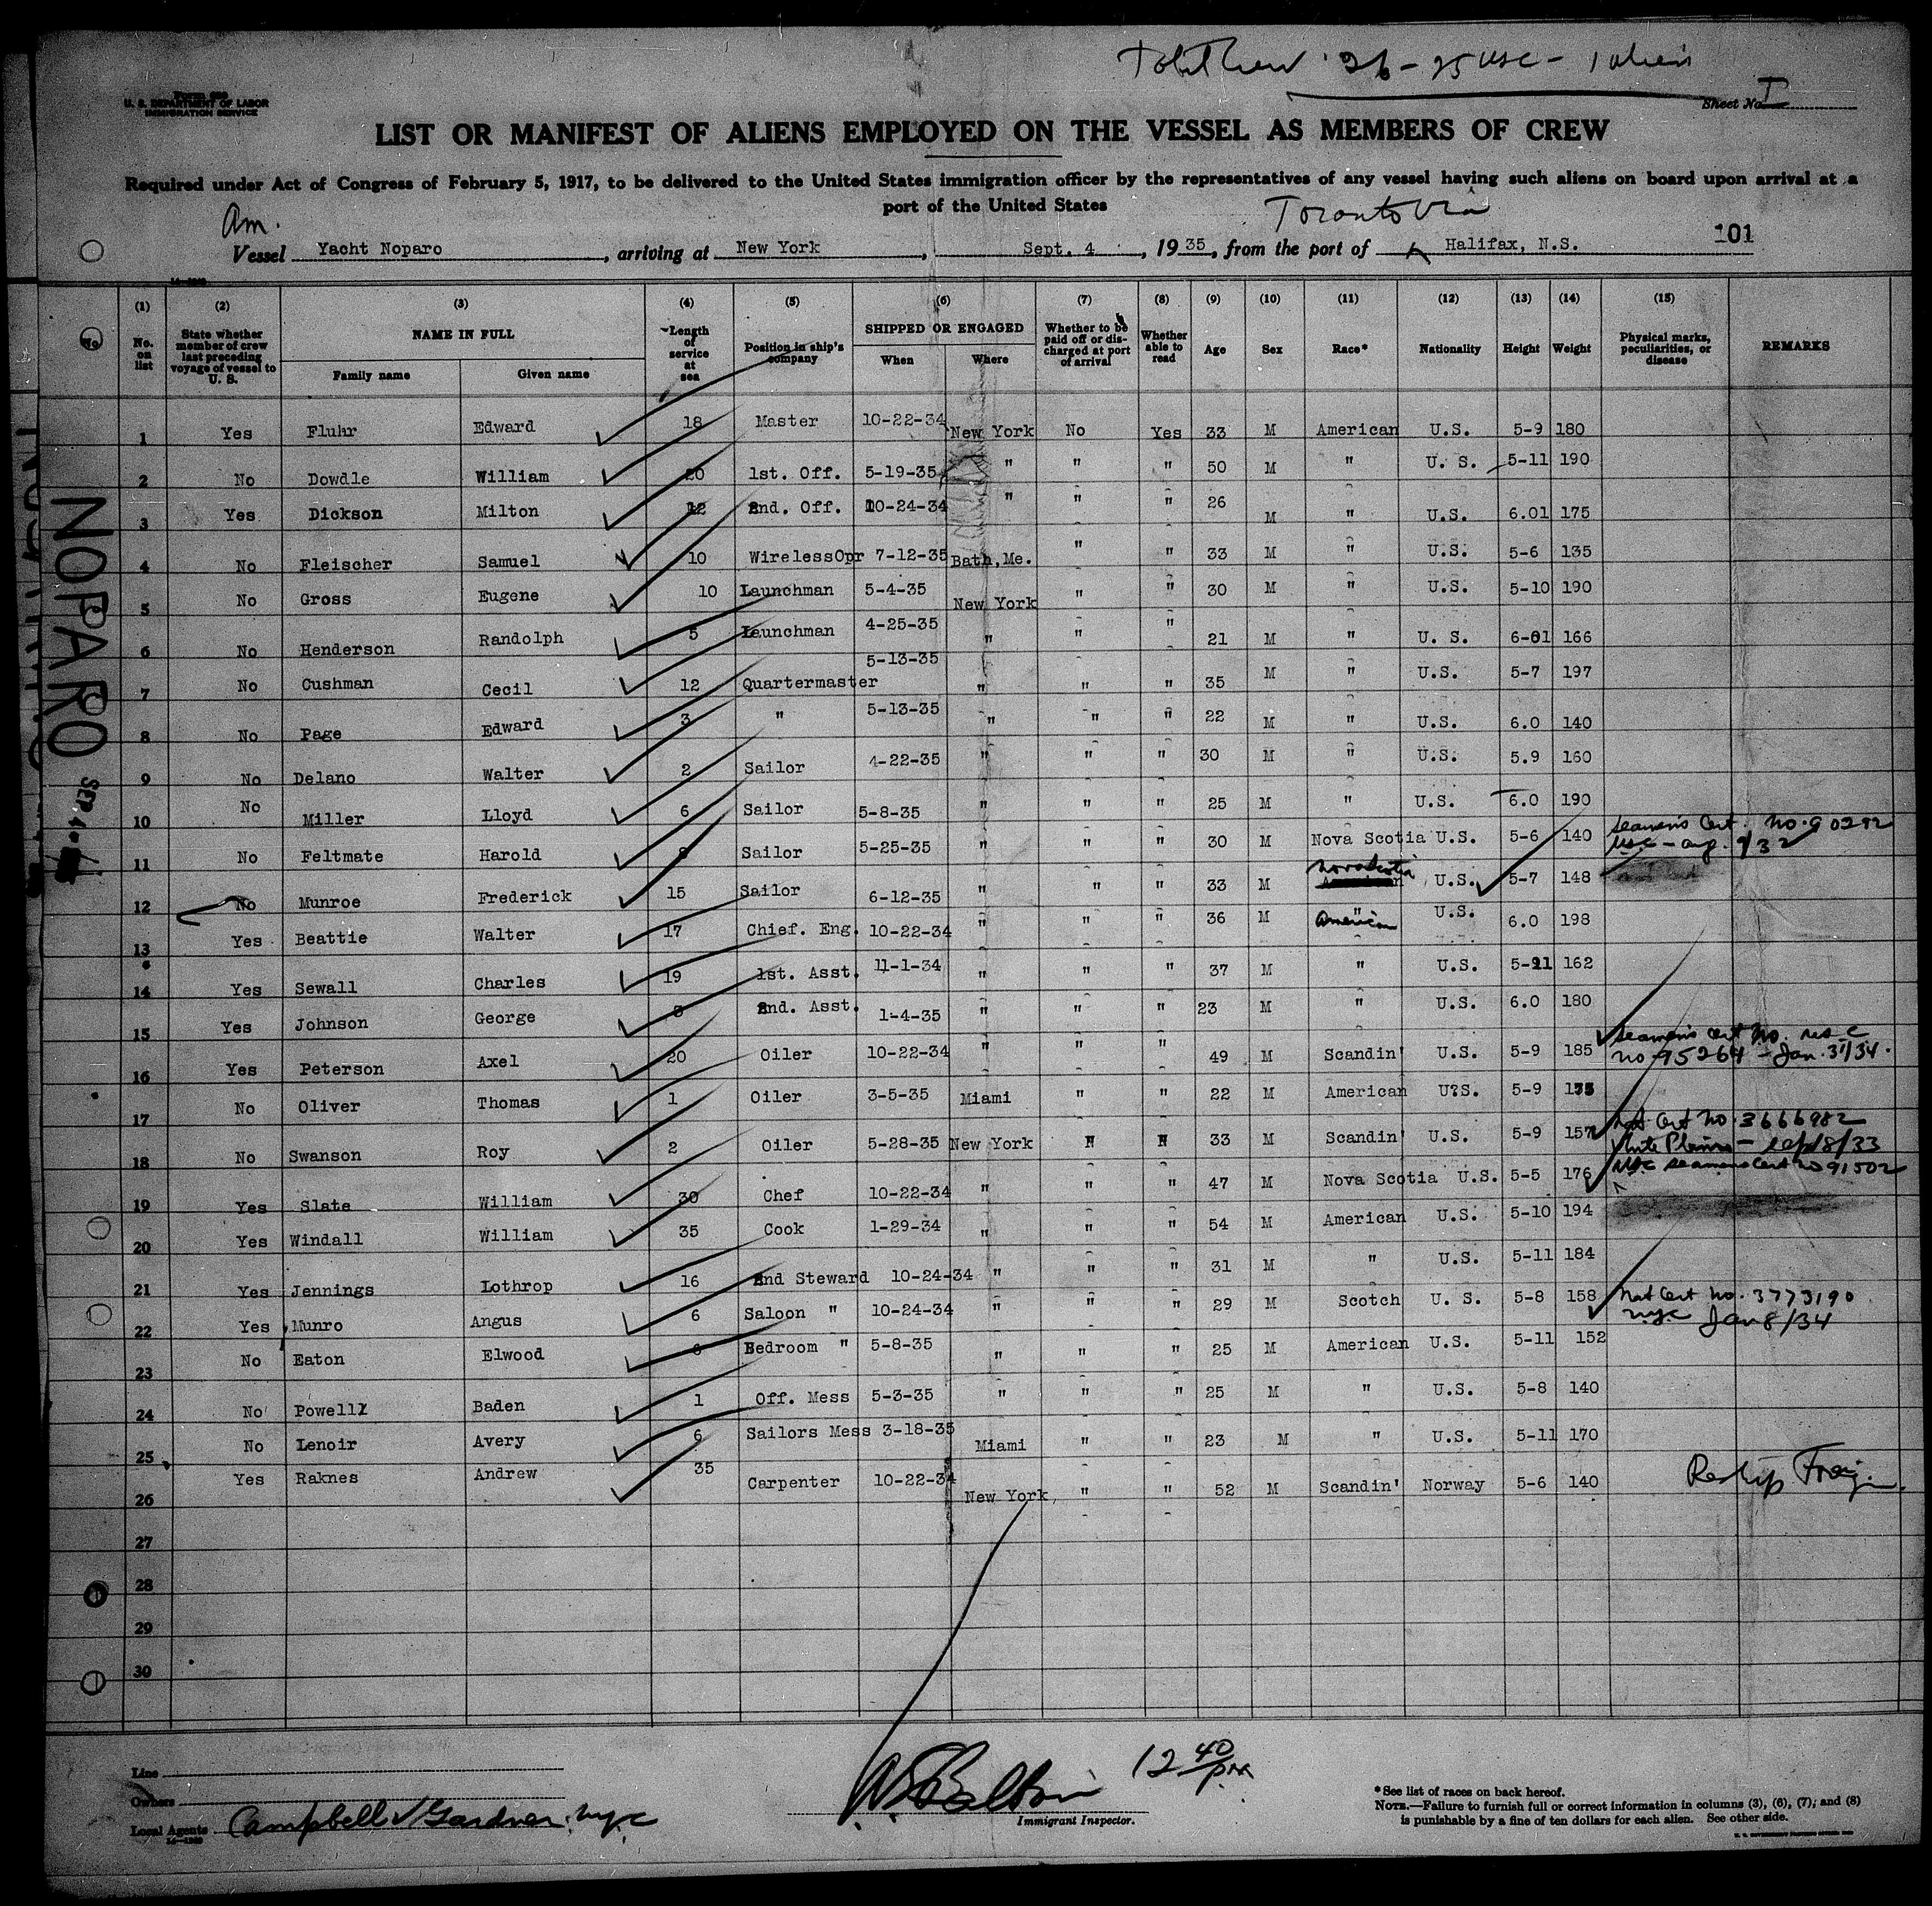 Total Crew 26 - 25 USC - 1 alien
Form 689
U. S. DEPARTMENT OF LABOR
IMMIGRATION SERVICE
Sheet No. I
LIST OR MANIFEST OF ALIENS EMPLOYED ON THE VESSEL AS MEMBERS OF CREW
Required under Act of Congress of February 5, 1917, to be delivered to the United States immigration officer by the representatives of any vessel having such aliens on board upon arrival at a
port of the United States
Am. Toronto Via
Vessel Yacht Noparo, arriving at New York, Sept. 4, 1935, from the port of Halifax, N.S. 101
(1) (2) (3) (4) (5) (6) (7) (8) (9) (10) (11) (12) (13) (14) (15)
No. on list State whether member of crew last preceding voyage of vessel to U. S. NAME IN FULL Family name Given name Length of service at sea Position in ship's company SHIPPED OR ENGAGED When Where Whether to be paid off or discharged at port of arrival Whether able to read Age Sex Race* Nationality Height Weight Physical marks, peculiarities, or disease REMARKS
1 Yes Fluhr Edward 18 Master 10-22-34 New York No Yes 33 M American U.S. 5-9 180
2 No Dowdle William 20 1st. Off. 5-19-35 " " " 50 M " U. S. 5-11 190
3 Yes Dickson Milton 12 2nd. Off. 10-24-34 " " " 26 M " U.S. 6.01 175
4 No Fleischer Samuel 10 WirelessOpr 7-12-35 Bath,Me. " " 33 M " U.S. 5-6 135
5 No Gross Eugene 10 Launchman 5-4-35 New York " " 30 M " U.S. 5-10 190
6 No Henderson Randolph 5 Launchman 4-25-35 " " " 21 M " U. S. 6-01 166
7 No Cushman Cecil 12 Quartermaster 5-13-35 " " " 35 M " U.S. 5-7 197
8 No Page Edward 3 " 5-13-35 " " " 22 M " U.S. 6.0 140
9 No Delano Walter 2 Sailor 4-22-35 " " " 30 M " U.S. 5.9 160
10 No Miller Lloyd 6 Sailor 5-8-35 " " " 25 M " U.S. 6.0 190
11 No Feltmate Harold 8 Sailor 5-25-35 " " " 30 M Nova Scotia U.S. 5-6 140 Seamens Cert. No. 90292
USC - aug. 9/32
12 No Munroe Frederick 15 Sailor 6-12-35 " " " 33 M Nova Scotia U.S. 5-7 148
13 Yes Beattie Walter 17 Chief. Eng. 10-22-34 " " " 36 M " American U.S. 6.0 198
14 Yes Sewall Charles 19 1st. Asst. 11-1-34 " " " 37 M " U.S. 5-11 162
15 Yes Johnson George 8 2nd. Asst. 1-4-35 " " " 23 M " U.S. 6.0 180
16 Yes Peterson Axel 20 Oiler 10-22-34 " " " 49 M Scandin' U.S. 5-9 185 Seamens Cert No.
No 95264 - Jan. 31/34.
17 No Oliver Thomas 1 Oiler 3-5-35 Miami " " 22 M American U?S. 5-9
18 No Swanson Roy 2 Oiler 5-28-35 New York " " 33 M Scandin' U.S. 5-9 157 Nat Cert No. 3666982
White Plains - Sep 18/33
19 Yes Slate William 30 Chef 10-22-34 " " " 47 M Nova Scotia U.S. 5-5 176 USC Seamens Cert No 91502
20 Yes Windall William 35 Cook 1-29-34 " " " 54 M American U.S. 5-10 194
21 Yes Jennings Lothrop 16 2nd Steward 10-24-34 " " " 31 M " U.S. 5-11 184
22 Yes Munro Angus 6 Saloon " 10-24-34 " " " 29 M Scotch U. S. 5-8 158 Nat Cert No. 3773190
NYC Jan 8/34
23 No Eaton Elwood 6 Bedroom " 5-8-35 " " " 25 M American U.S. 5-11 152
24 No Powell Baden 1 Off. Mess 5-3-35 " " " 25 M " U.S. 5-8 140
25 No Lenoir Avery 6 Sailors Mess 3-18-35 Miami " " 23 M " U.S. 5-11 170
26 Yes Raknes Andrew 35 Carpenter 10-22-34 New York " " 52 M Scandin' Norway 5-6 140 Reship Foreign
27
28
29
30
NOPARO
SEP 4
Line
Owners
Local Agents Campbell & Gardner. NYC
Immigrant Inspector.
12 40 pm
*See list of races on back hereof.
NOTE.—Failure to furnish full or correct information in columns (3), (6), (7), and (8)
is punishable by a fine of ten dollars for each alien. See other side.